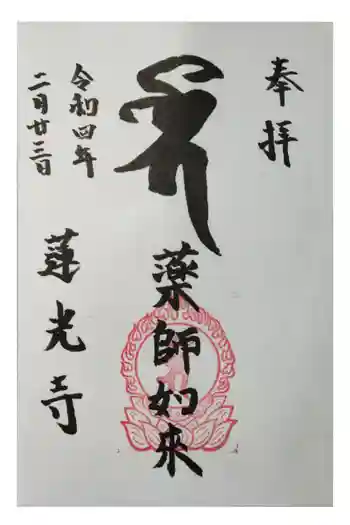 奉拝
薬師如來
令和四年
二月廿三日
蓮光寺